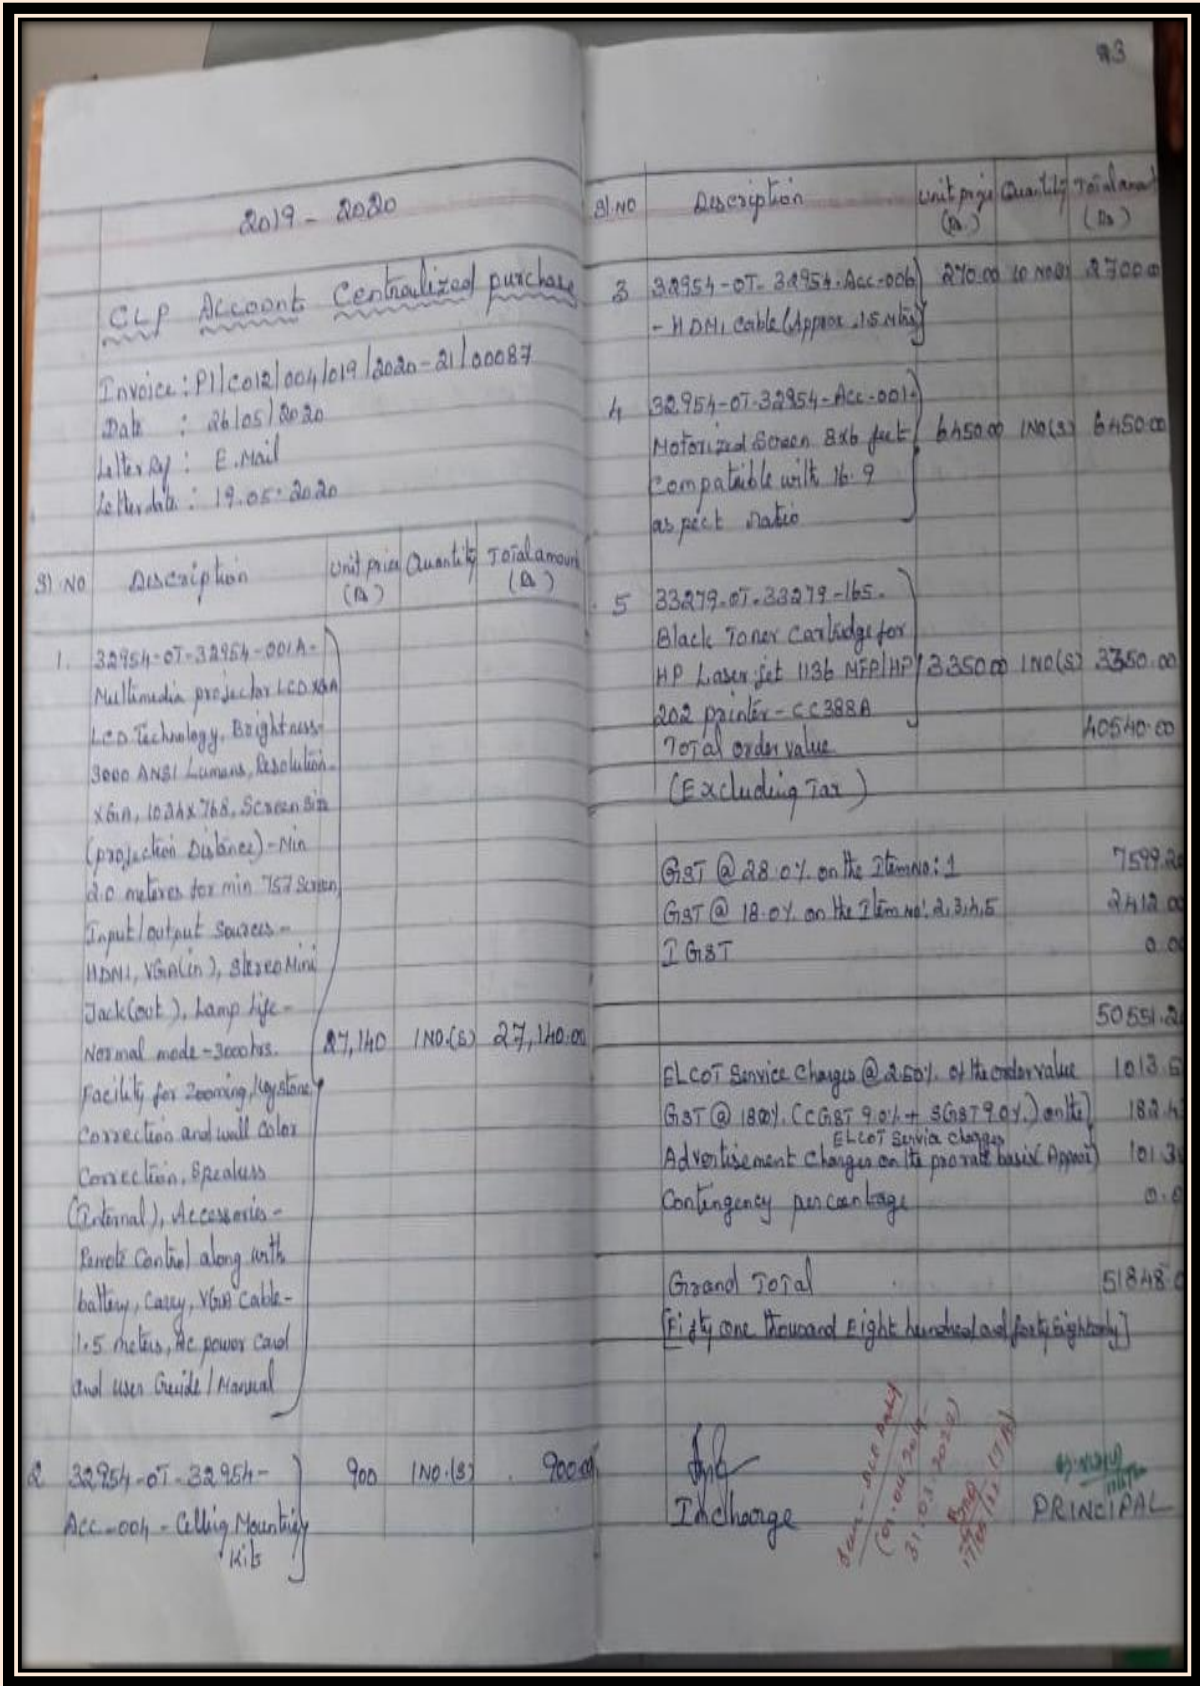 2019 - 2020
CLP Account Centralized purchase
Invoice : PI/CO12/004/019/2020-21/00087
Date : 26/05/2020
Letter Ref : E.Mail
Letter date : 19.05.2020
Sl.NO Description Unit price (Rs) Quantity Total amount (Rs)
1. 32954-OT-32954-001A-
Multimedia projector LCD XGA
LCD Technology, Brightness-
3000 ANSI Lumans, Resolution-
XGA, 1024x768, Screen Size
(projection Distance)-Min
2.0 meteres for min 757 Screen,
Input/output Sources-
HDMI, VGA(in), Stereo Mini
Jack(out), Lamp life-
Normal mode-3000hrs. 27,140 1NO.(S) 27,140.00
Facility for Zooming, Keystone
Correction and wall Color
Correction, Speakers
(internal), Accessories-
Remote Control along with
battery, Carry, VGA Cable-
1.5 meters, AC power Card
and user Guide/Manual
2 32954-OT-32954- 900 1NO.(S) 900.00
ACC-004-Celling Mounting
Kits
Sl.NO Description Unit price (Rs.) Quantity Total amount (Rs)
3 32954-OT-32954-Acc-006 270.00 10 NO(S) 2700.00
- HDMI Cable (Approx .15 Mtrs)
4 32954-OT-32954-Acc-001-
Motorized Screen 8x6 feet 6450.00 1NO(S) 6450.00
Compataible with 16.9
aspect ratio
5 33279-OT-33279-165-
Black Toner Cartridge for
HP Laserjet 1136 MFP/HP 3350.00 1NO(S) 3350.00
202 printer-CC388A
Total order value 40540.00
(Excluding Tax)
GST @ 28.0% on the Item NO: 1 7599.20
GST @ 18.0% on the Item NO: 2,3,4,5 2412.00
I GST 0.00
50551.2
ELCOT Service Charges @ 2.50% of the order value 1013.5
GST @ 18.0% (CGST 9.0% + SGST 9.0%) on the 182.4
ELCOT Service Charges
Advertisement Charges on the prorate basis (Approx) 101.3
Contingency percentage 0.0
Grand Total 51848.0
[Fifty one thousand Eight hundred and forty Eight only]
Incharge
PRINCIPAL
(01.04.2019-
31.03.2020)